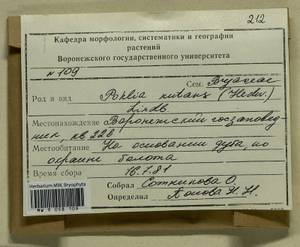 212
Кафедра морфологии, систематики и географии
растений
Воронежского государственного университета
№ 109
Сем. Bryaceae
Род и вид Pohlia nutans (Hedw.)
Lindb.
Местонахождение Воронежский госзаповед
ник, кв 228
Местообитание На основании дуба, по
окраине болота
Время сбора 16.7.81
Собрал Сотникова О.
Определил Попова Н.Н.
Herbarium MW, Bryophyta